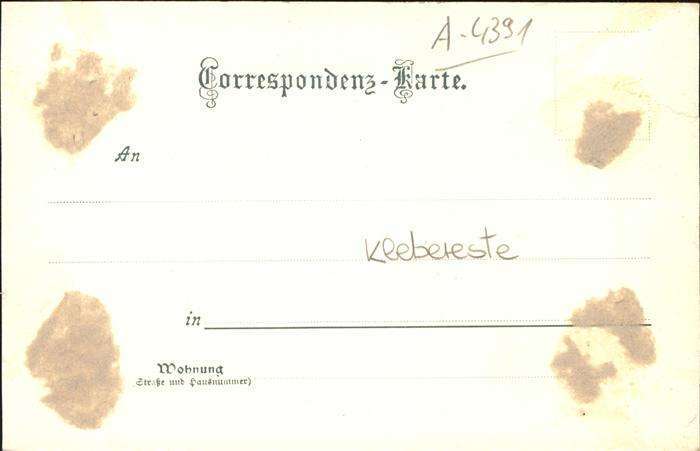 A-4391
Correspondenz-Karte.
An
Klebereste
in
Wohnung
(Straße und Hausnummer)